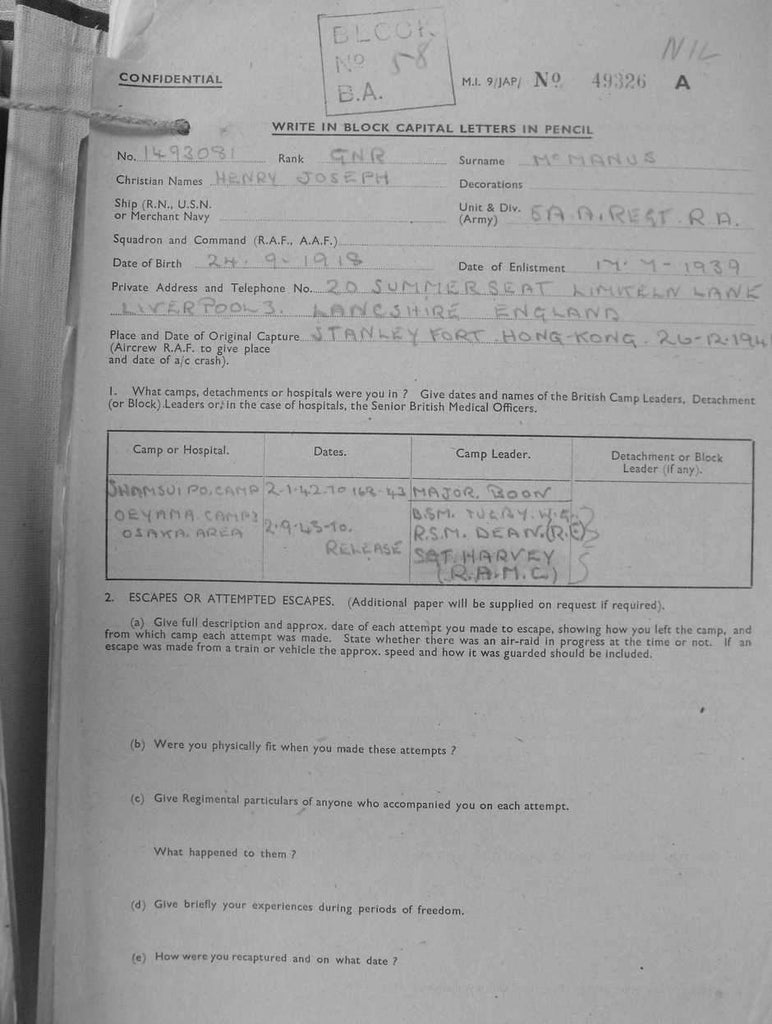 BLOCK
Nº 58
B.A.
NIL
CONFIDENTIAL
M.I. 9/JAP/ Nº 49326 A
WRITE IN BLOCK CAPITAL LETTERS IN PENCIL
No. 1493081 Rank GNR Surname McMANUS
Christian Names HENRY JOSEPH Decorations
Ship (R.N., U.S.N.
or Merchant Navy
Unit & Div.
(Army) 5 A.A. REGT. R.A.
Squadron and Command (R.A.F., A.A.F.)
Date of Birth 24.9-1918 Date of Enlistment 17.7-1939
Private Address and Telephone No. 20 SUMMER SEAT LIMKELN LANE
LIVERPOOL 3. LANCSHIRE ENGLAND
Place and Date of Original Capture STANLEY FORT. HONG-KONG. 26-12-194
(Aircrew R.A.F. to give place
and date of a/c crash).
1. What camps, detachments or hospitals were you in ? Give dates and names of the British Camp Leaders, Detachment
(or Block) Leaders or, in the case of hospitals, the Senior British Medical Officers.
Camp or Hospital. Dates. Camp Leader. Detachment or Block
Leader (if any).
SHAMSUI PO. CAMP 2-1-42. TO MAJOR. BOON
OEYAMA. CAMP B.S.M.
OSAKA. AREA 2-9-43-TO. R.S.M. DEAN. (R.E)
RELEASE SGT. HARVEY
(R.A.M.C.)
2. ESCAPES OR ATTEMPTED ESCAPES. (Additional paper will be supplied on request if required).
(a) Give full description and approx. date of each attempt you made to escape, showing how you left the camp, and
from which camp each attempt was made. State whether there was an air-raid in progress at the time or not. If an
escape was made from a train or vehicle the approx. speed and how it was guarded should be included.
(b) Were you physically fit when you made these attempts ?
(c) Give Regimental particulars of anyone who accompanied you on each attempt.
What happened to them ?
(d) Give briefly your experiences during periods of freedom.
(e) How were you recaptured and on what date ?